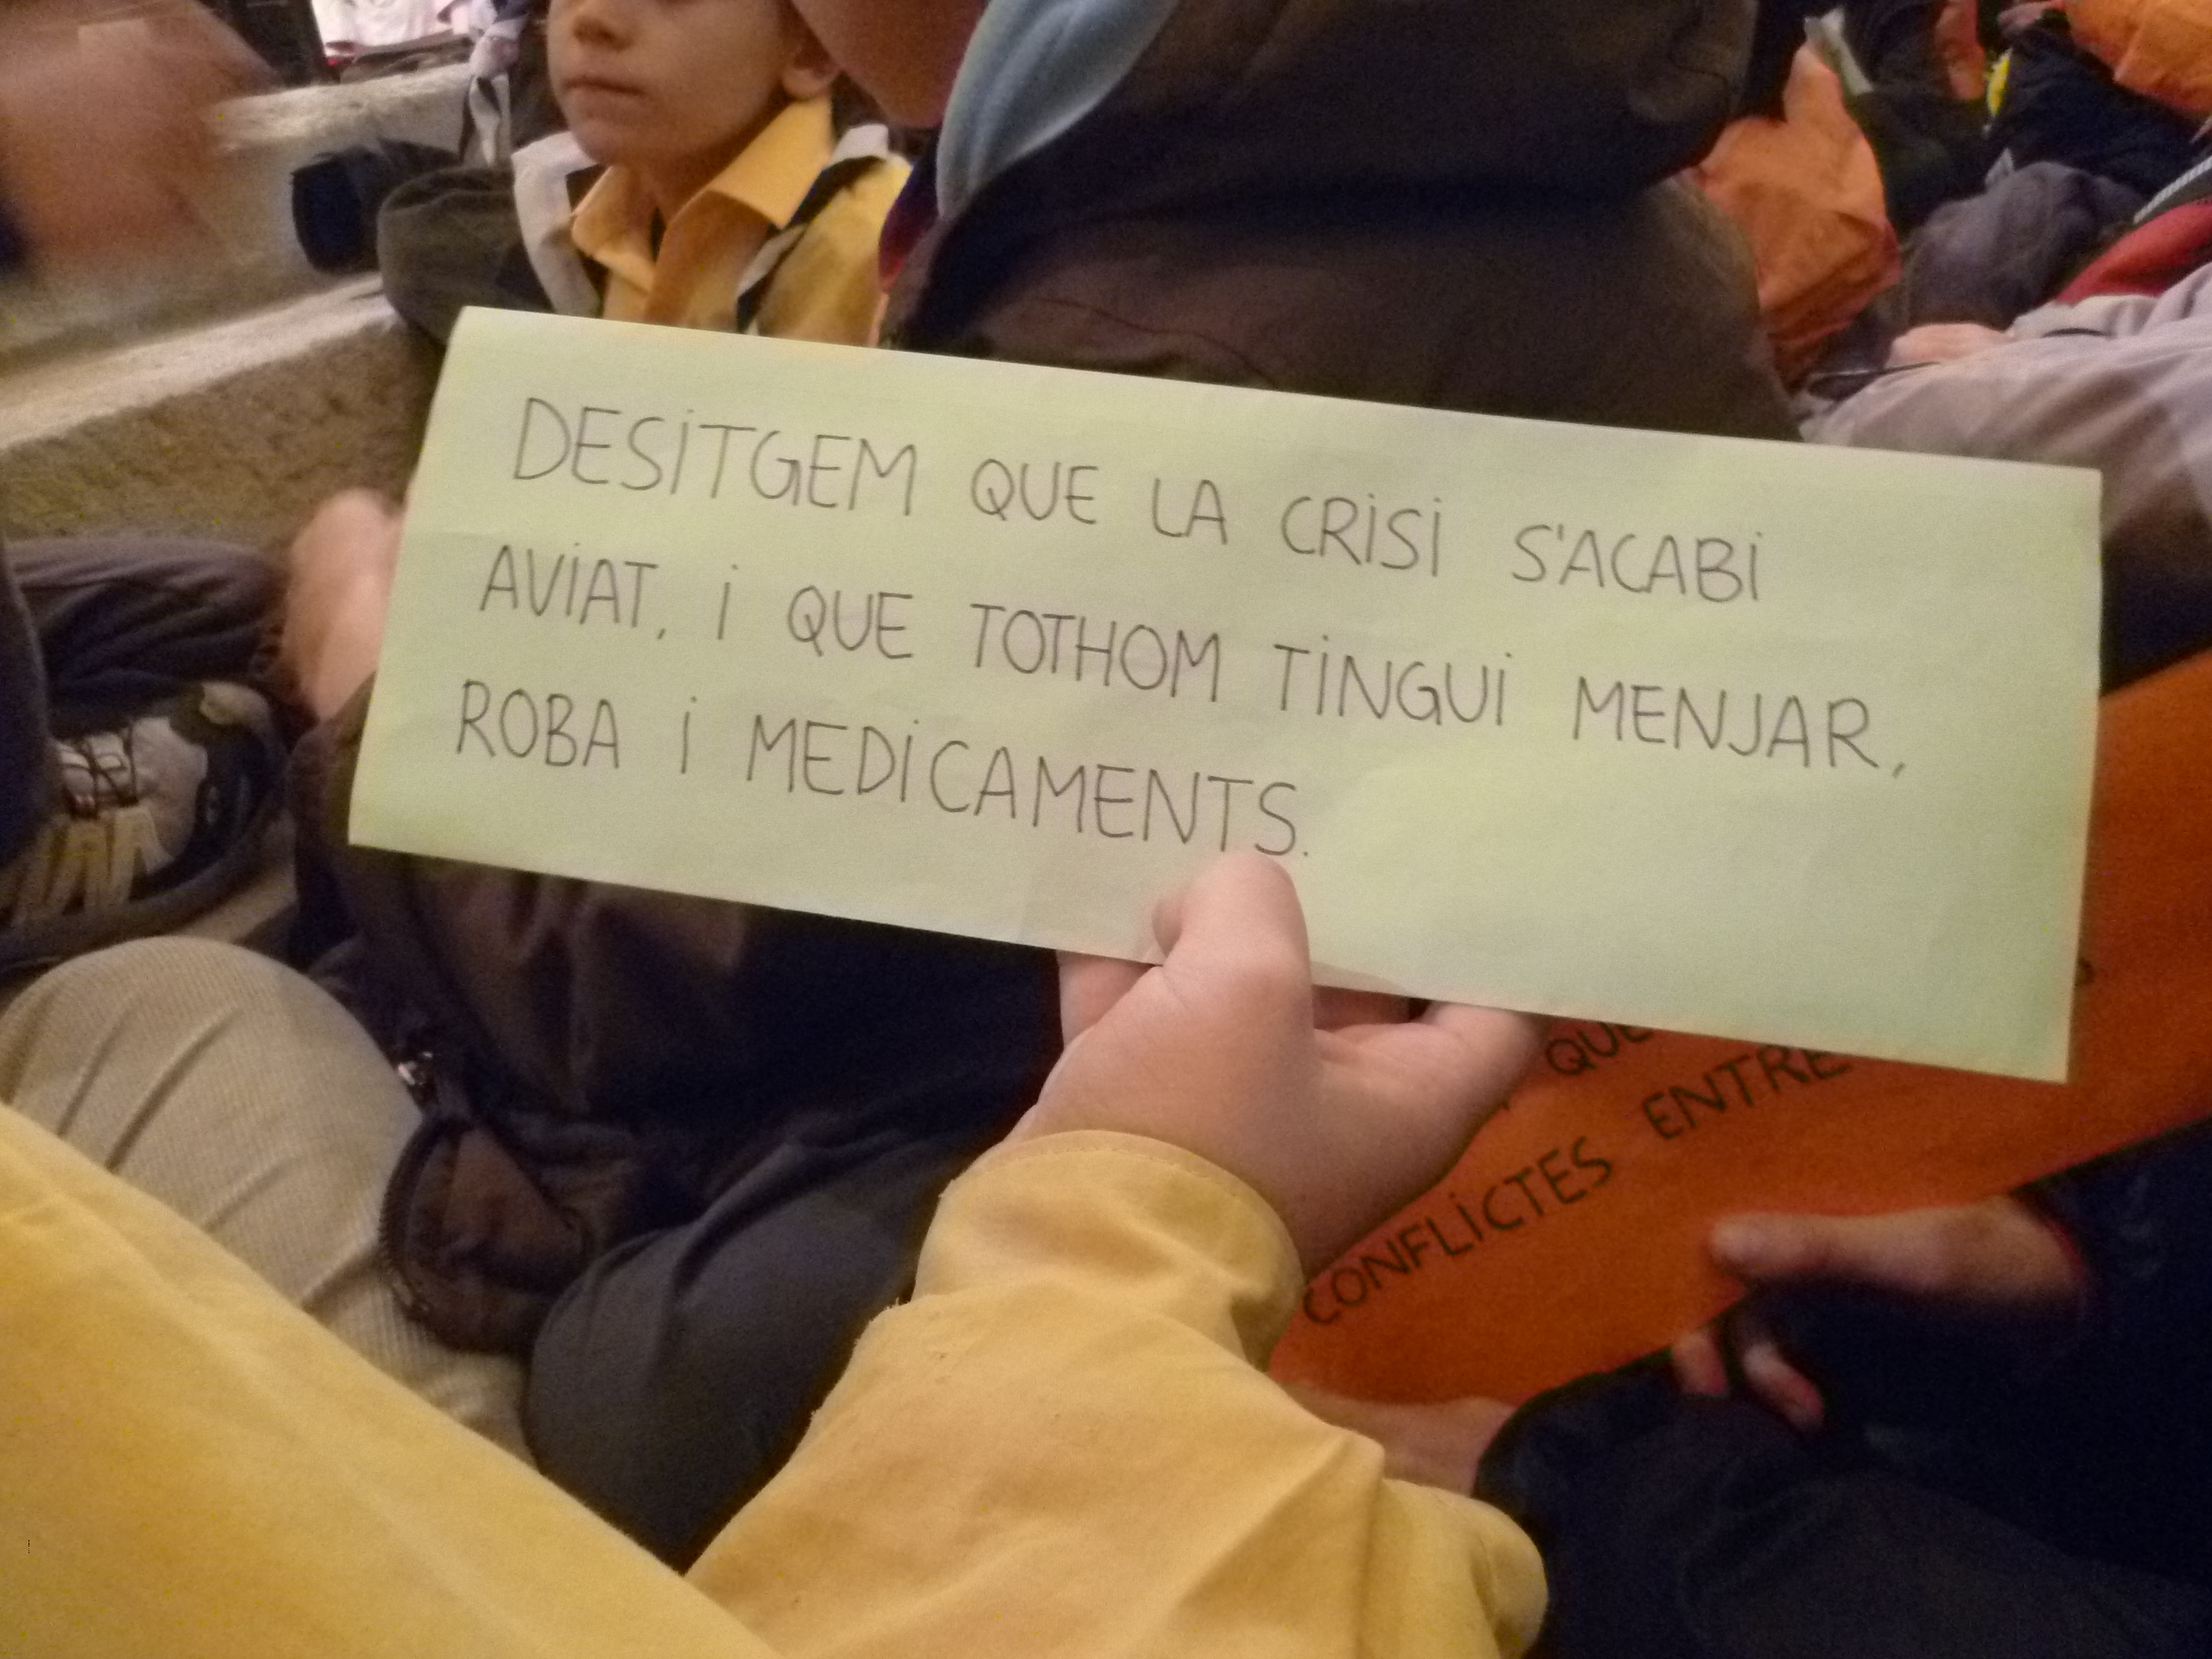 DESITGEM QUE LA CRISI S'ACABI
AVIAT, I QUE TOTHOM TINGUI MENJAR,
ROBA I MEDICAMENTS.
QUE
CONFLICTES ENTRE